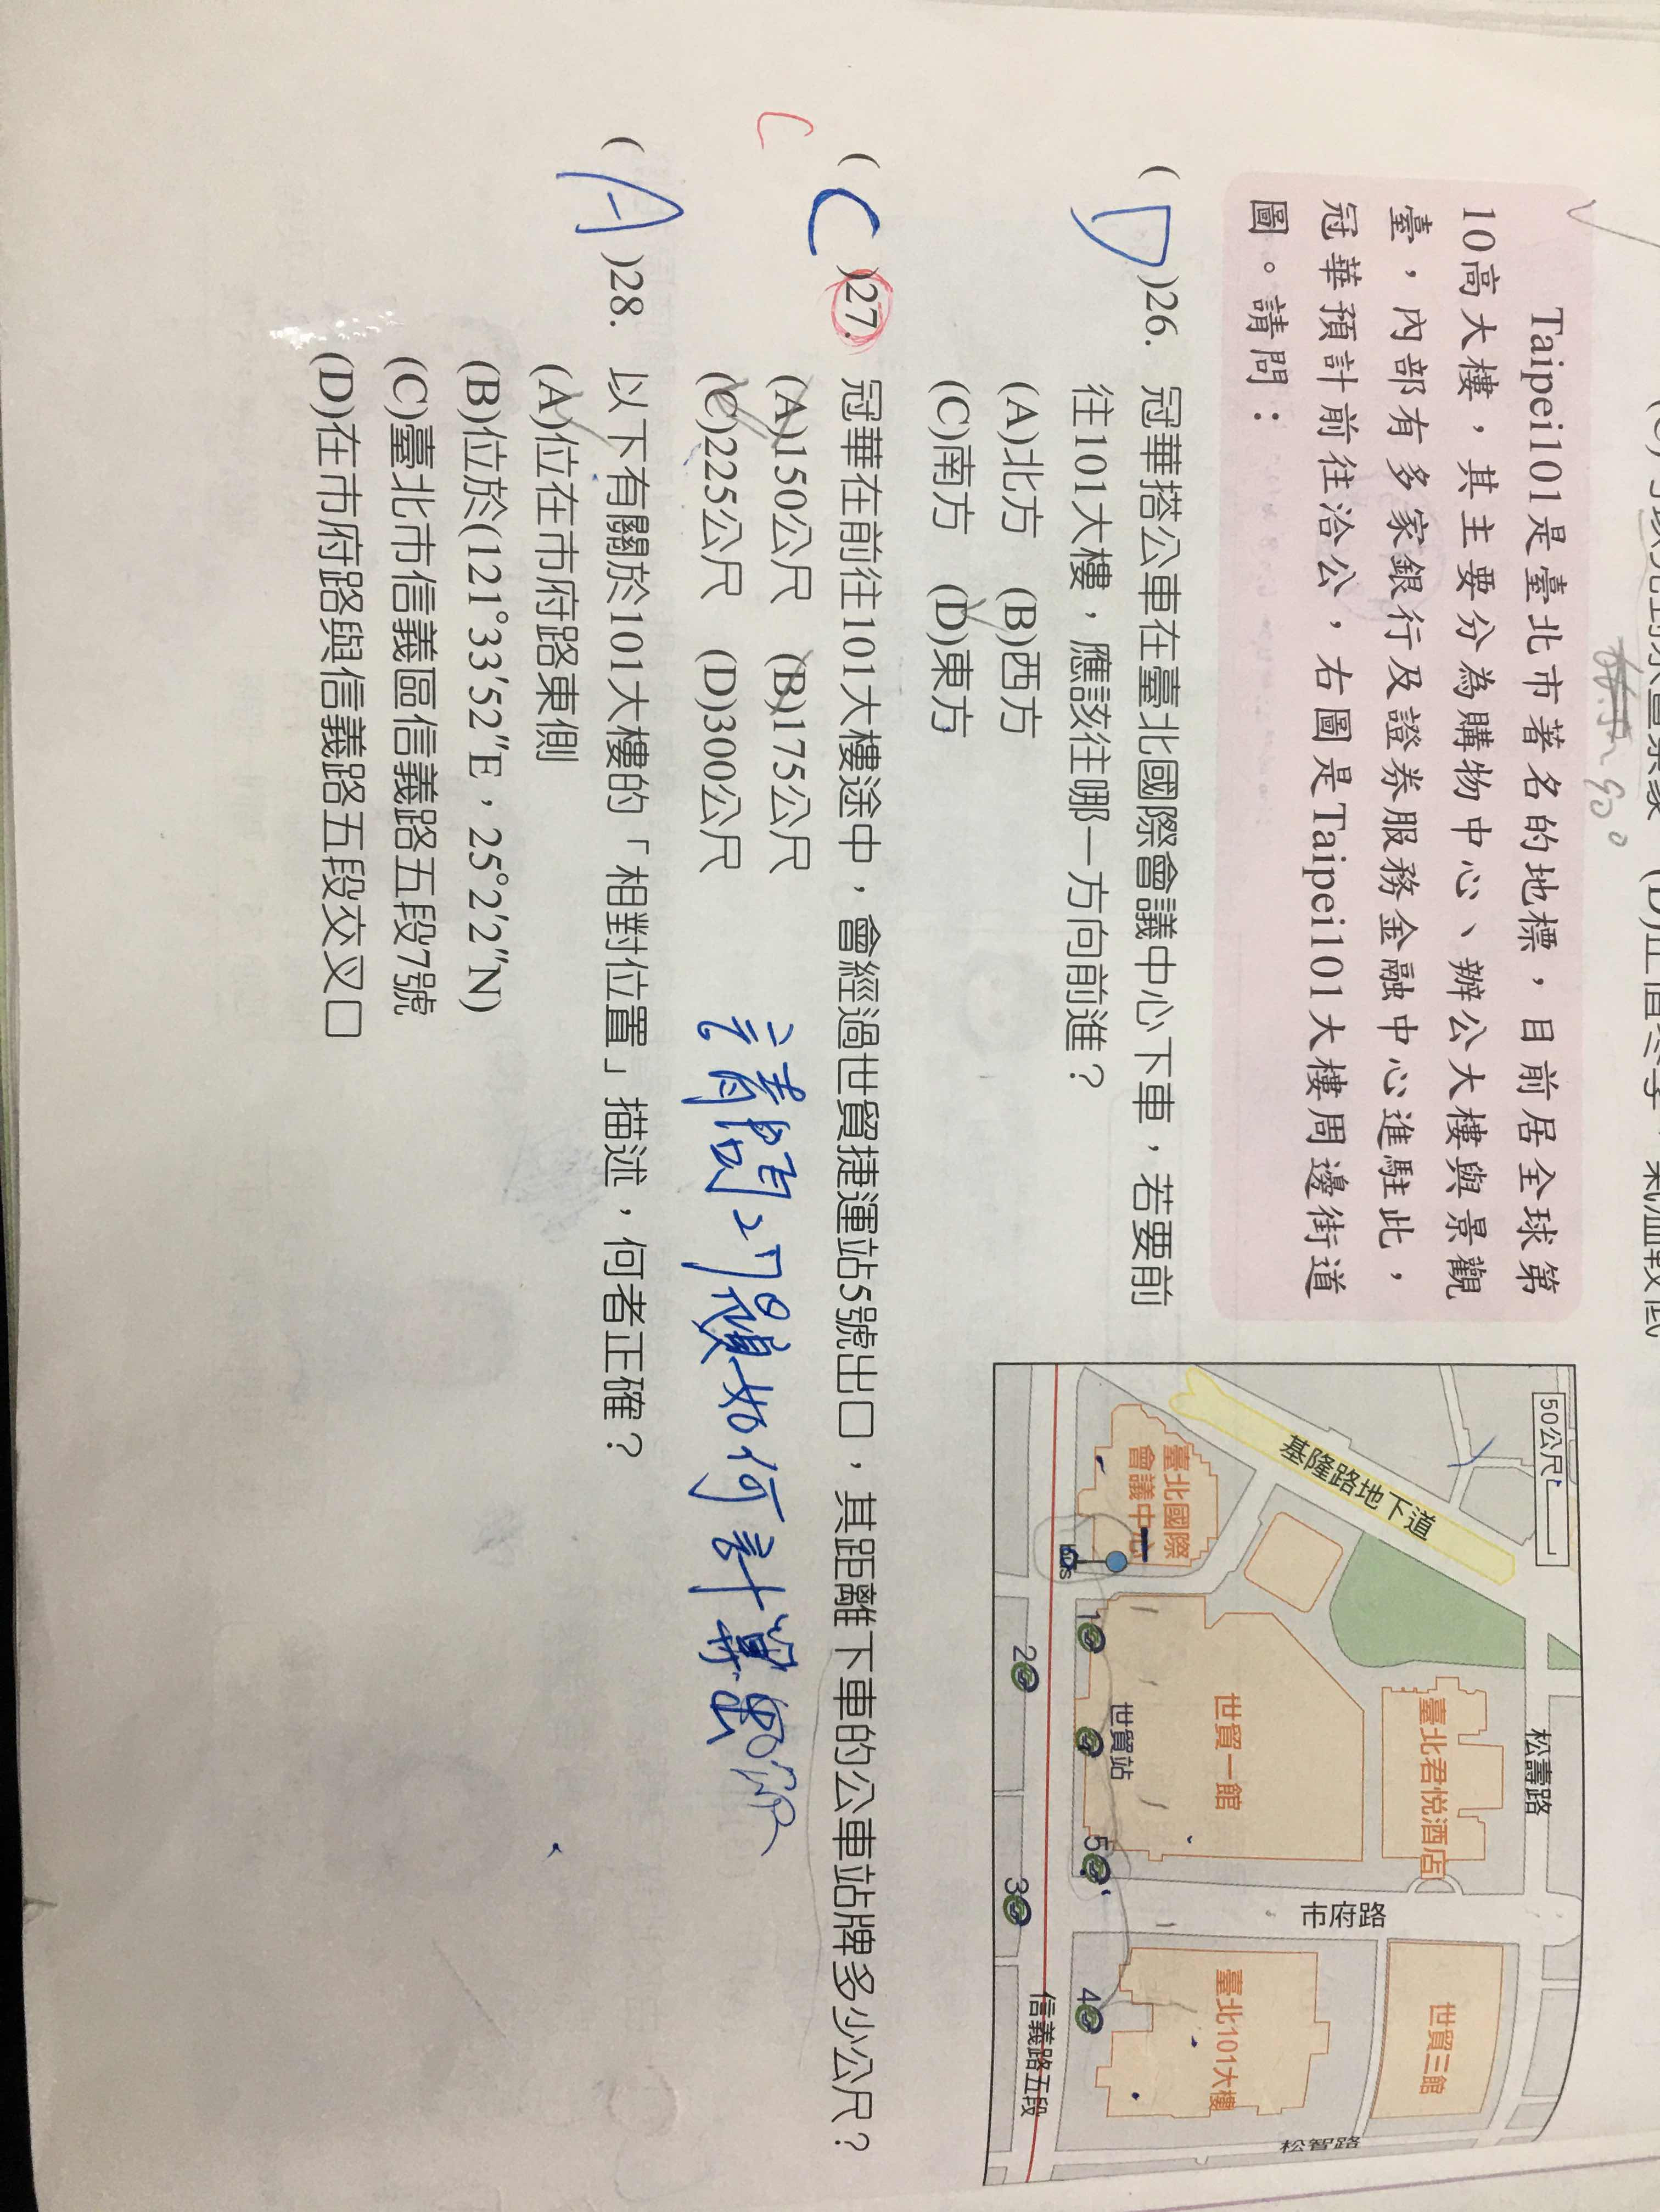 90°
Taipei101是臺北市著名的地標，目前居全球第
10高大樓，其主要分為購物中心、辦公大樓與景觀
臺，內部有多家銀行及證券服務金融中心進駐此，
冠華預計前往洽公，右圖是Taipei101大樓周邊街道
圖。請問：
50公尺
基隆路地下道
松壽路
臺北國際
會議中心
bus
世貿一館
臺北君悅酒店
世貿站
市府路
世貿三館
臺北101大樓
信義路五段
松智路
1
2
5
3
4
( D )26. 冠華搭公車在臺北國際會議中心下車，若要前
往101大樓，應該往哪一方向前進？
(A)北方 (B)西方
(C)南方 (D)東方
C
( C )27. 冠華在前往101大樓途中，會經過世貿捷運站5號出口，其距離下車的公車站牌多少公尺？
(A)150公尺 (B)175公尺
(C)225公尺 (D)300公尺
請問27題如何計算出
( A )28. 以下有關於101大樓的「相對位置」描述，何者正確？
(A)位在市府路東側
(B)位於(121°33′52″E，25°2′2″N)
(C)臺北市信義區信義路五段7號
(D)在市府路與信義路五段交叉口